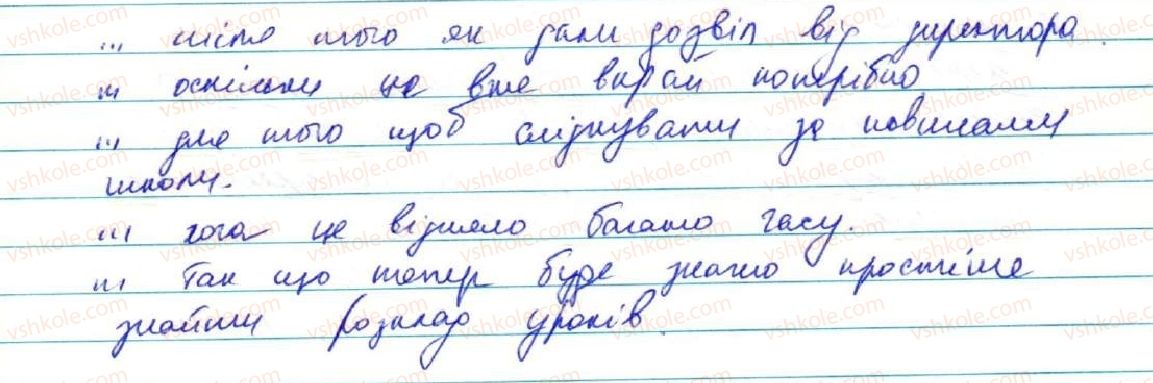 ... після того як дали дозвіл від директора.
... оскільки це вже вкрай потрібно
... для того щоб слідкувати за новинами
школи.
... хоча це відняло багато часу.
... так що тепер буде значно простіше
знайти розклад уроків.